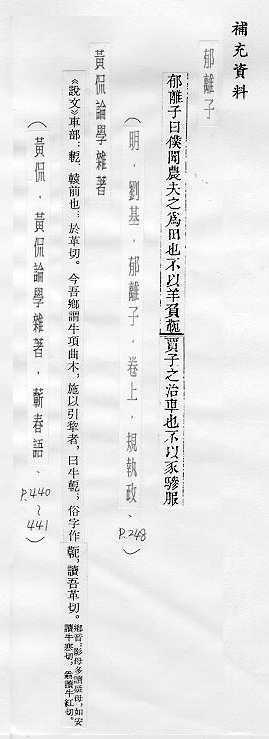 補充資料
郁離子
郁離子曰僕聞農夫之為田也不以羊負軛賈子之治車也不以豕驂服
（明．劉基．郁離子．卷上．規執政、P.248）
黃侃論學雜著
《說文》車部：軶，轅前也；於革切。今吾鄉謂牛項曲木，施以引犂者，曰牛軶；俗字作，讀吾革切。
鄉音：影母多讀疑母，如安
讀牛寒切，翁讀牛紅切。
（黃侃．黃侃論學雜著．蘄春語、P.440~441）